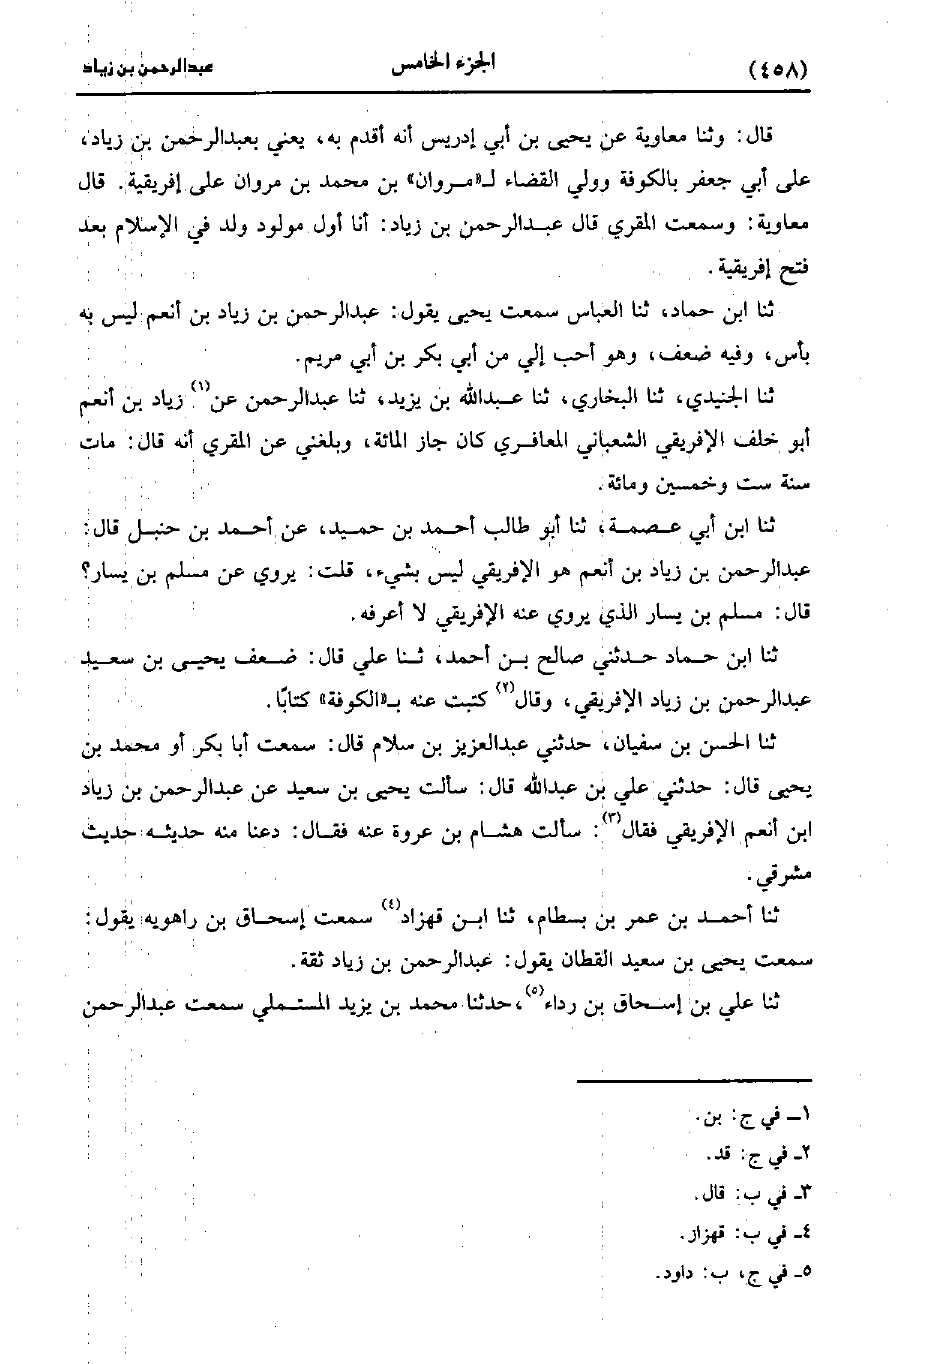 (٤٥٨) الجزء الخامس عبدالرحمن بن زياد
قال: وثنا معاوية عن يحيى بن أبي إدريس أنه أقدم به، يعني بعبدالرحمن بن زياد،
على أبي جعفر بالكوفة وولي القضاء لـ«مروان» بن محمد بن مروان على إفريقية. قال
معاوية: وسمعت المقري قال عبدالرحمن بن زياد: أنا أول مولود ولد في الإسلام بعد
فتح إفريقية.
ثنا ابن حماد، ثنا العباس سمعت يحيى يقول: عبدالرحمن بن زياد بن أنعم ليس به
بأس، وفيه ضعف، وهو أحب إلي من أبي بكر بن أبي مريم.
ثنا الجنيدي، ثنا البخاري، ثنا عبدالله بن يزيد، ثنا عبدالرحمن عن(١) زياد بن أنعم
أبو خلف الإفريقي الشعباني المعافري كان جاز المائة، وبلغني عن المقري أنه قال: مات
سنة ست وخمسين ومائة.
ثنا ابن أبي عصمة، ثنا أبو طالب أحمد بن حميد، عن أحمد بن حنبل قال:
عبدالرحمن بن زياد بن أنعم هو الإفريقي ليس بشيء، قلت: يروي عن مسلم بن يسار؟
قال: مسلم بن يسار الذي يروي عنه الإفريقي لا أعرفه.
ثنا ابن حماد حدثني صالح بن أحمد، ثنا علي قال: ضعف يحيى بن سعيد
عبدالرحمن بن زياد الإفريقي، وقال(٢) كتبت عنه بـ«الكوفة» كتابًا.
ثنا الحسن بن سفيان، حدثني عبدالعزيز بن سلام قال: سمعت أبا بكر أو محمد بن
يحيى قال: حدثني علي بن عبدالله قال: سألت يحيى بن سعيد عن عبدالرحمن بن زياد
ابن أنعم الإفريقي فقال(٣): سألت هشام بن عروة عنه فقال: دعنا منه حديثه حديث
مشرقي.
ثنا أحمد بن عمر بن بسطام، ثنا ابن قهزاد(٤) سمعت إسحاق بن راهويه يقول:
سمعت يحيى بن سعيد القطان يقول: عبدالرحمن بن زياد ثقة.
ثنا علي بن إسحاق بن رداء(٥)، حدثنا محمد بن يزيد المستملي سمعت عبدالرحمن
١ـ في ج: بن.
٢ـ في ج: قد.
٣ـ في ب: قال.
٤ـ في ب: قهزاز.
٥ـ في ج، ب: داود.